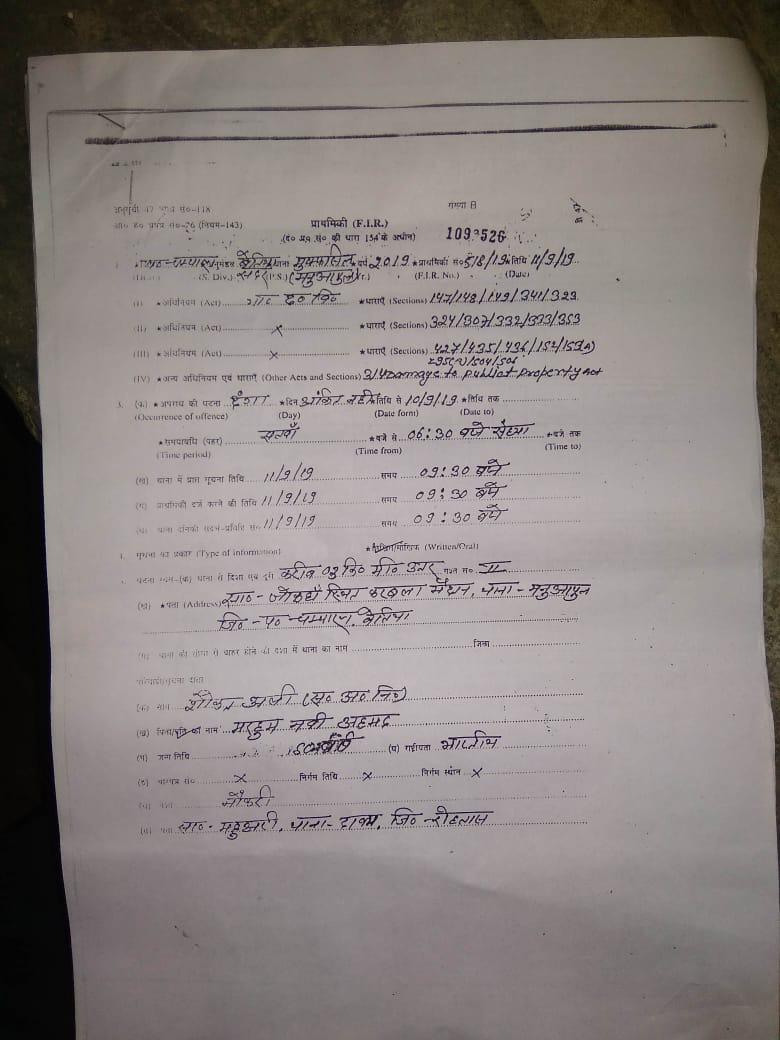 अनुसूची 47 प्रपत्र सं०-118 संख्या B
आ० ह० प्रपत्र सं०-76 (नियम-143) प्राथमिकी (F.I.R.)
(द० प्र० सं० की धारा 154 के अधीन) 1093526
बेतिया थाना मुफस्सिल वर्ष 2019 ★प्राथमिकी सं० 518/19 ★तिथि 11/9/19
(S. Div.) सदर (P.S.) (मनुआपुल) (F.I.R. No.) (Date)
(I) ★अधिनियम (Act) भा० द० वि० ★धाराएँ (Sections) 147/148/149/341/323
(II) ★अधिनियम (Act) × ★धाराएँ (Sections) 324/307/332/333/353
(III) ★अधिनियम (Act) × ★धाराएँ (Sections) 427/435/436/152/153(A)
295(A)/504/506
(IV) ★अन्य अधिनियम एवं धाराएँ (Other Acts and Sections) 3/4 Damage to Public Property Act
3. (क) ★अपराध की घटना दंगा ★दिन अंकित नहीं तिथि से 10/9/19 ★तिथि तक
(Occurrence of offence) (Day) (Date form) (Date to)
★समयावधि (पहर) सतवाँ ★बजे से 06:30 बजे संध्या ★बजे तक
(Time period) (Time from) (Time to)
(ख) थाना में प्राप्त सूचना तिथि 11/9/19 समय 09:30 बजे
(ग) प्राथमिकी दर्ज करने की तिथि 11/9/19 समय 09:30 बजे
(घ) थाना दैनिकी संदर्भ-प्रविष्टि सं० 11/9/19 समय 09:30 बजे
सूचना का प्रकार (Type of information) ★लिखित/मौखिक (Written/Oral)
घटना स्थल-(क) थाना से दिशा एवं दूरी करीब 03 कि० मी० उत्तर गश्त सं० II
(ख) ★पता (Address) सा०- स्थित करबला मैदान, थाना- मनुआपुल
जि०-प० चम्पारण, बेतिया
(ग) थाना की सीमा से बाहर होने की दशा में थाना का नाम जिला
परिवादी/सूचना दाता
(क) नाम शौकत अली (स० अ० नि०)
(ख) पिता/पति का नाम मरहुम नबी अहमद
(ग) जन्म तिथि (घ) राष्ट्रीयता भारतीय
(ङ) पारपत्र सं० × निर्गम तिथि × निर्गम स्थान ×
(च) पेशा नौकरी
(छ) पता सा०- महुआरी, थाना- जि०-रोहतास